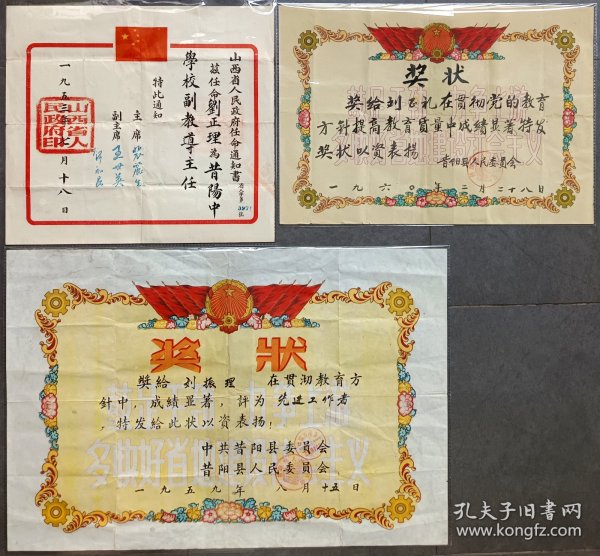 山西省人民政府任命通知书
兹任命劉正理為昔陽中
學校副教導主任
特此通知
主席
副主席
一九五三年 月十八日
山西省人民政府印
奖状
奖给刘正礼在贯彻党的教育
方针提高教育质量中成绩显著特发
奖状以资表扬
昔阳县人民委员会
一九六〇年二月二十八日
奖狀
奬给 刘振理 在貫沏教育方
針中，成績显著，評为 先进工作者
，特发給此状以資表揚；
中共昔阳县委員会
昔阳县人民委員会
一九五九年 八月十五日
孔夫子旧书网
www.kongfz.com